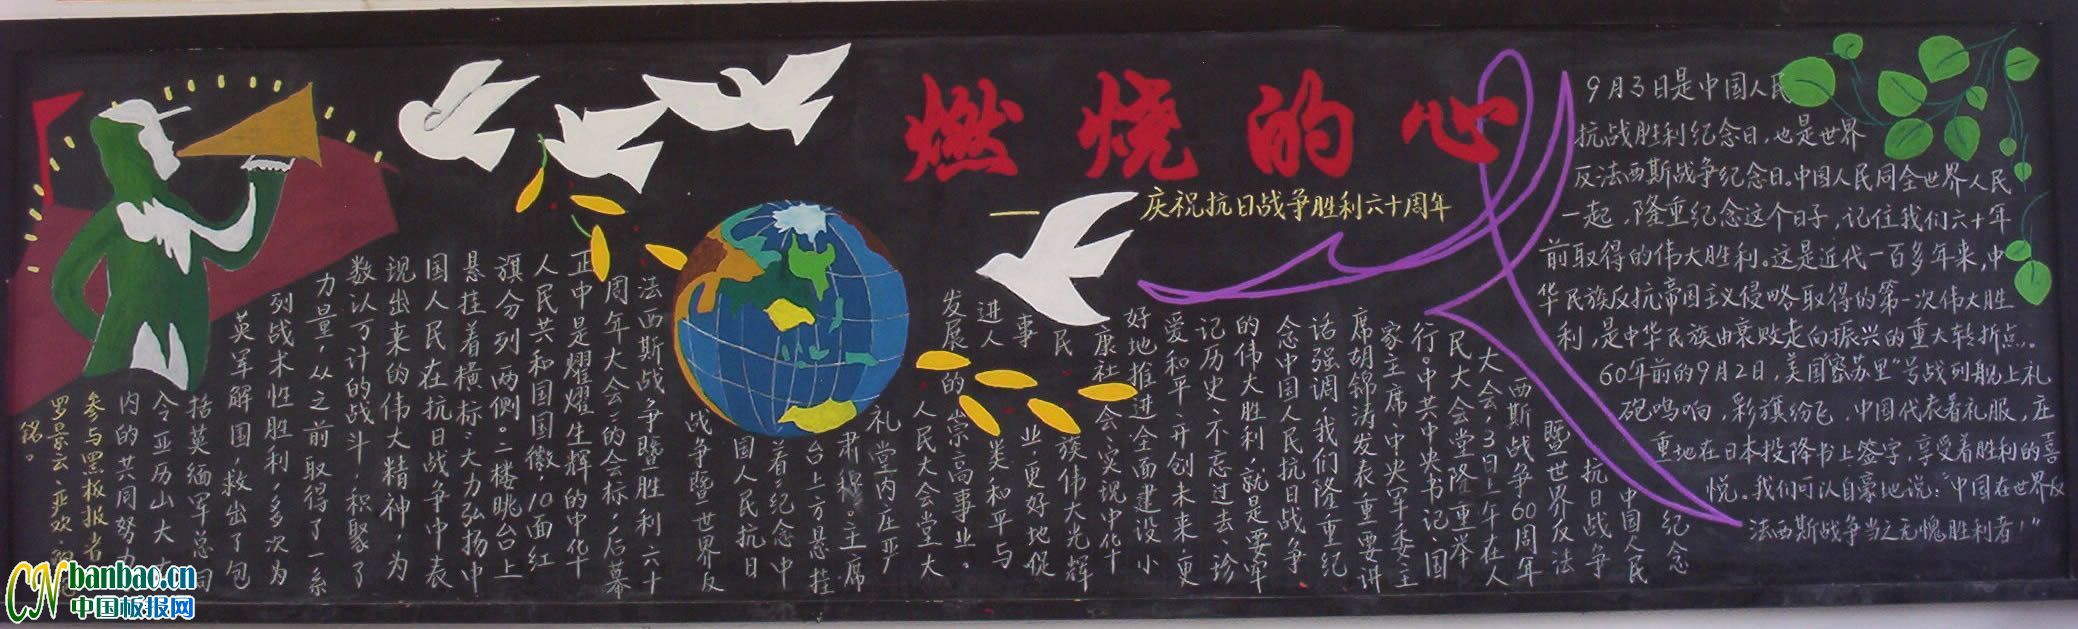 燃烧的心
——庆祝抗日战争胜利六十周年
9月3日是中国人民
抗战胜利纪念日，也是世界
反法西斯战争纪念日。中国人民同全世界人民
一起，隆重纪念这个日子，记住我们六十年
前取得的伟大胜利。这是近代一百多年来，中
华民族反抗帝国主义侵略取得的第一次伟大胜
利，是中华民族由衰败走向振兴的重大转折点。
60年前的9月2日，美国"密苏里"号战列舰上礼
砲鸣响，彩旗纷飞。中国代表着礼服，庄
重地在日本投降书上签字，享受着胜利的喜
悦。我们可以自豪地说："中国在世界反
法西斯战争当之无愧胜利者！"
纪念
中国人民
抗日战争
暨世界反法
西斯战争60周年
大会，3日上午在人
民大会堂隆重举
行。中共中央书记、国
家主席、中央军委主
席胡锦涛发表重要讲
话强调，我们隆重纪
念中国人民抗日战争
的伟大胜利，就是要牢
记历史、不忘过去、珍
爱和平、开创未来，更
好地推进全面建设小
康社会，实现中华
民族伟大光辉
事业，更好地促
进人类和平与
发展的崇高事业。
人民大会堂大
礼堂内庄严
肃穆。主席
台上方悬挂
着"纪念中
国人民抗日
战争暨世界反
法西斯战争暨胜利六十
周年大会"的会标，后幕
正中是耀耀生辉的中华
人民共和国国徽，10面红
旗分列两侧。二楼眺台上
悬挂着横标："大力弘扬中
国人民在抗日战争中表
现出来的伟大精神，为
数以万计的战斗，积聚了
力量，从之前取得了一系
列战术性胜利，多次为
英军解围，救出了包
括英缅军总司
令亚历山大
内的共同努力
参与黑板报者
罗景云、严欢、魏
铭。
CN banbao.cn
中国板报网